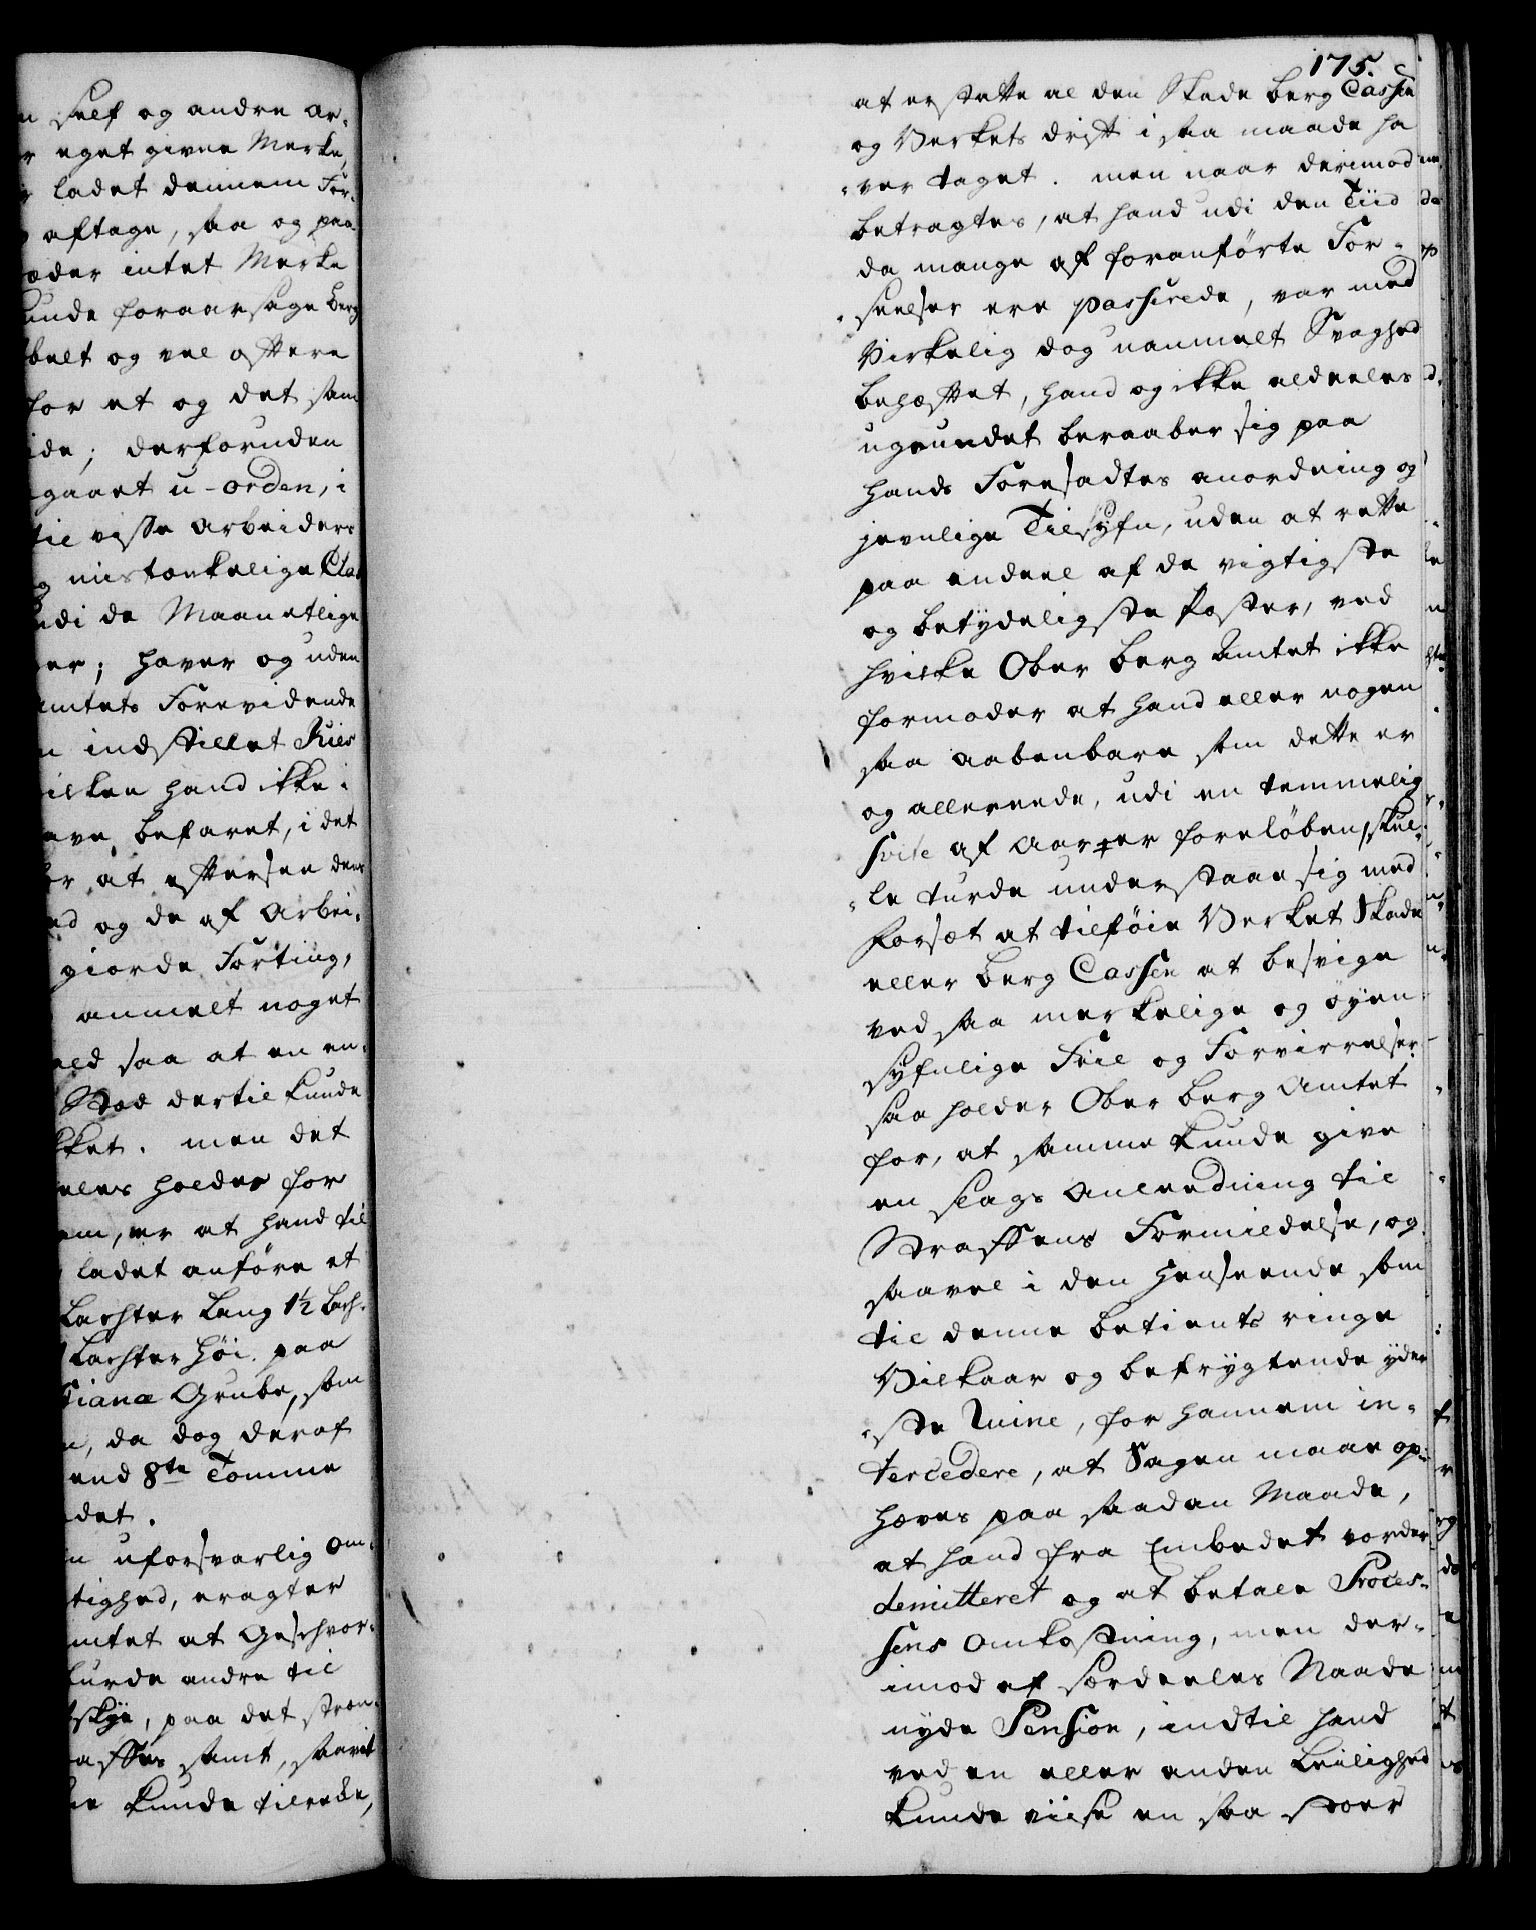 n self og andre ar-
r eget givne Merke,
r ladet dennem For-
aftage, saa og paa
æder intet Merke
kunde foraarsage Berg
belt og vel oftere
for et og det sam
ide; derforuden
gaaet u-orden, i
til visse Arbeiders
g mistænkelige
udi de Maanetlige
er; haver og uden
Amtets Forevidende
n indstillet
ilken hand ikke i
ave befaret, i det
or at eftersee dens
ed og de af Arbei-
giorde Forting,
anmelt noget
eld saa at en en-
Stod dertil kunde
kket. men det
eles holder for
em, er at hand til
ladet anføre et
Lachter Lang 1½ Lach-
Lachter Høi paa
tianæ Grube, som
n, da dog deraf
end 8te Tomme
det.
n uforsvarlig Om-
tighed, eragter
mtet at Geschvor-
turde andre til
skÿe, paa det stræn-
affes samt, saavit
e kunde tilrekke,
175.
at erstatte al den Skade Berg Cassen
og Verkets drift i saa maade ha
-ver taget. men naar derimod
betragtes, at hand udi den Tiid
da mange af foranførte For-
-seelser ere passerede, var med
Virkelig dog uanmelt Svaghed
behæftet, hand og ikke aldeeles
ugrundet beraaber sig paa
hands Foresadtes anordning og
jevnlige Tilsÿfn, uden at rette
paa endeel af de vigtigste
og betÿdeligste Poster, ved
hvilke Ober Berg Amtet ikke
formoder at hand eller nogen
saa aabenbare som dette er
og allereede, udi en temmelig
Svite af Aar er foreløben, skul-
-le turde understaae sig med
Forsæt at tilføie Verket Skade
eller Berg Cassen at besvige
ved saa merkelige og øÿen-
sÿfnlige Feil og Forvirrelser
saa holder Ober Berg Amtet
for, at samme kunde give
en slags Anleedning til
Straffens Formildelse, og
saavel i den Henseende som
til denne betients ringe
Vilkaar og befrÿgtende ÿder
-ste Ruine, for hannem in-
tercedere, at Sagen maae op-
hæves paa saadan Maade,
at hand fra Embedet vorder
demitteret og at betale Proces-
sens Omkostning, men der-
imod af særdeeles Naade
nÿde Pension, indtil hand
ved en eller anden Leilighed
kunde viise en saa stoer